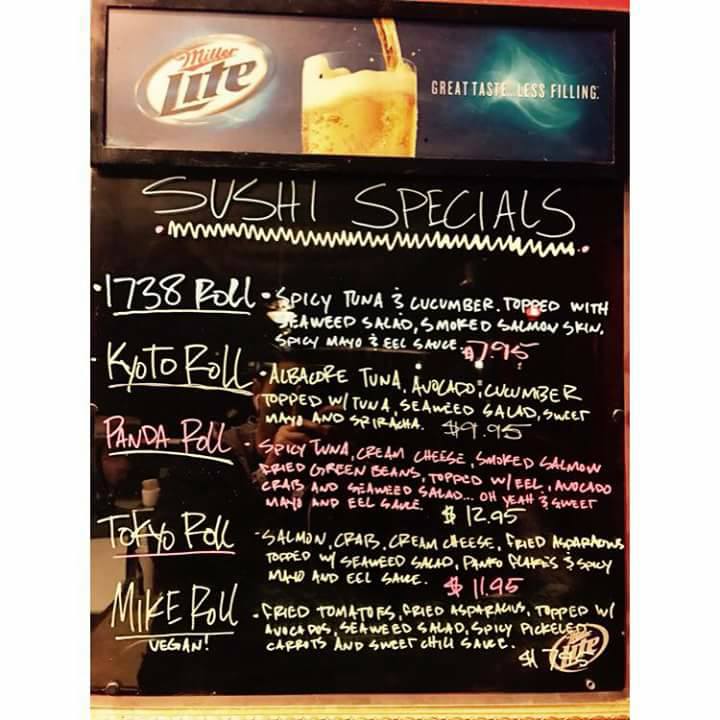 Miller
Lite
GREAT TASTE. LESS FILLING.
SUSHI SPECIALS
·1738 ROLL · SPICY TUNA & CUCUMBER. TOPPED WITH
SEAWEED SALAD, SMOKED SALMON SKIN,
SPICY MAYO & EEL SAUCE. $7.95
· KYOTO ROLL · ALBACORE TUNA, AVOCADO, CUCUMBER
TOPPED W/ TUNA, SEAWEED SALAD, SWEET
MAYO AND SRIRACHA. $9.95
PANDA ROLL - SPICY TUNA, CREAM CHEESE, SMOKED SALMON
FRIED GREEN BEANS, TOPPED W/ EEL, AVOCADO
CRAB AND SEAWEED SALAD... OH YEAH & SWEET
MAYO AND EEL SAUCE. $12.95
TOKYO ROLL - SALMON, CRAB, CREAM CHEESE, FRIED ASPARAGUS
TOPPED W/ SEAWEED SALAD, PANKO FLAKES & SPICY
MAYO AND EEL SAUCE. $11.95
MIKE ROLL - FRIED TOMATOES, FRIED ASPARAGUS, TOPPED W/
VEGAN! AVOCADOS, SEAWEED SALAD, SPICY PICKELED
CARROTS AND SWEET CHILI SAUCE.
Lite